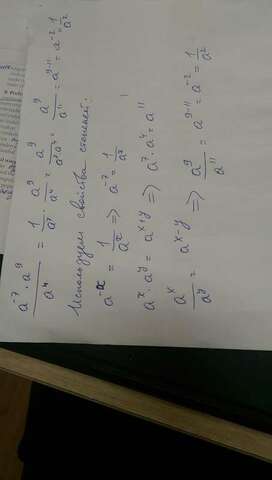 a⁻⁷ · a⁹ / a⁴ = 1/a⁷ · a⁹/a⁴ = a⁹/a⁷a⁴ = a⁹/a¹¹ = a⁹⁻¹¹ = a⁻² = 1/a²
Используем свойства степеней:
a⁻ˣ = 1/aˣ => a⁻⁷ = 1/a⁷
aˣ · aʸ = aˣ⁺ʸ => a⁷ · a⁴ = a¹¹
aˣ/aʸ = aˣ⁻ʸ => a⁹/a¹¹ = a⁹⁻¹¹ = a⁻² = 1/a²